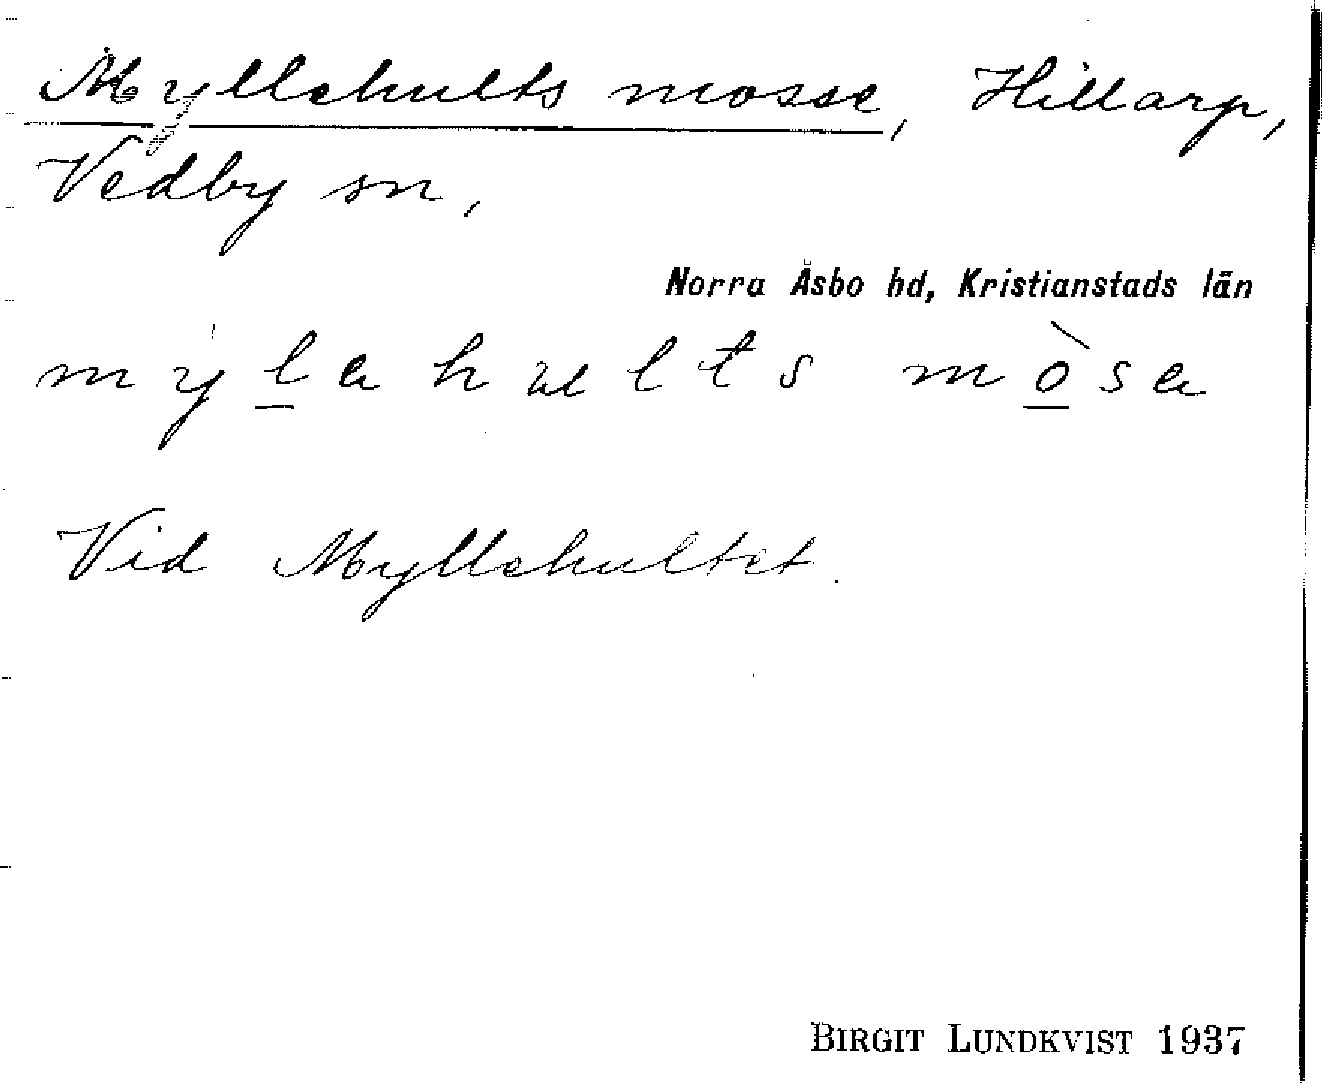 Myllehults mosse, Hillarp,
Vedby sn,
Norra Åsbo hd, Kristianstads län
mylahults mòsa
Vid Myllehultet.
BIRGIT LUNDKVIST 1937